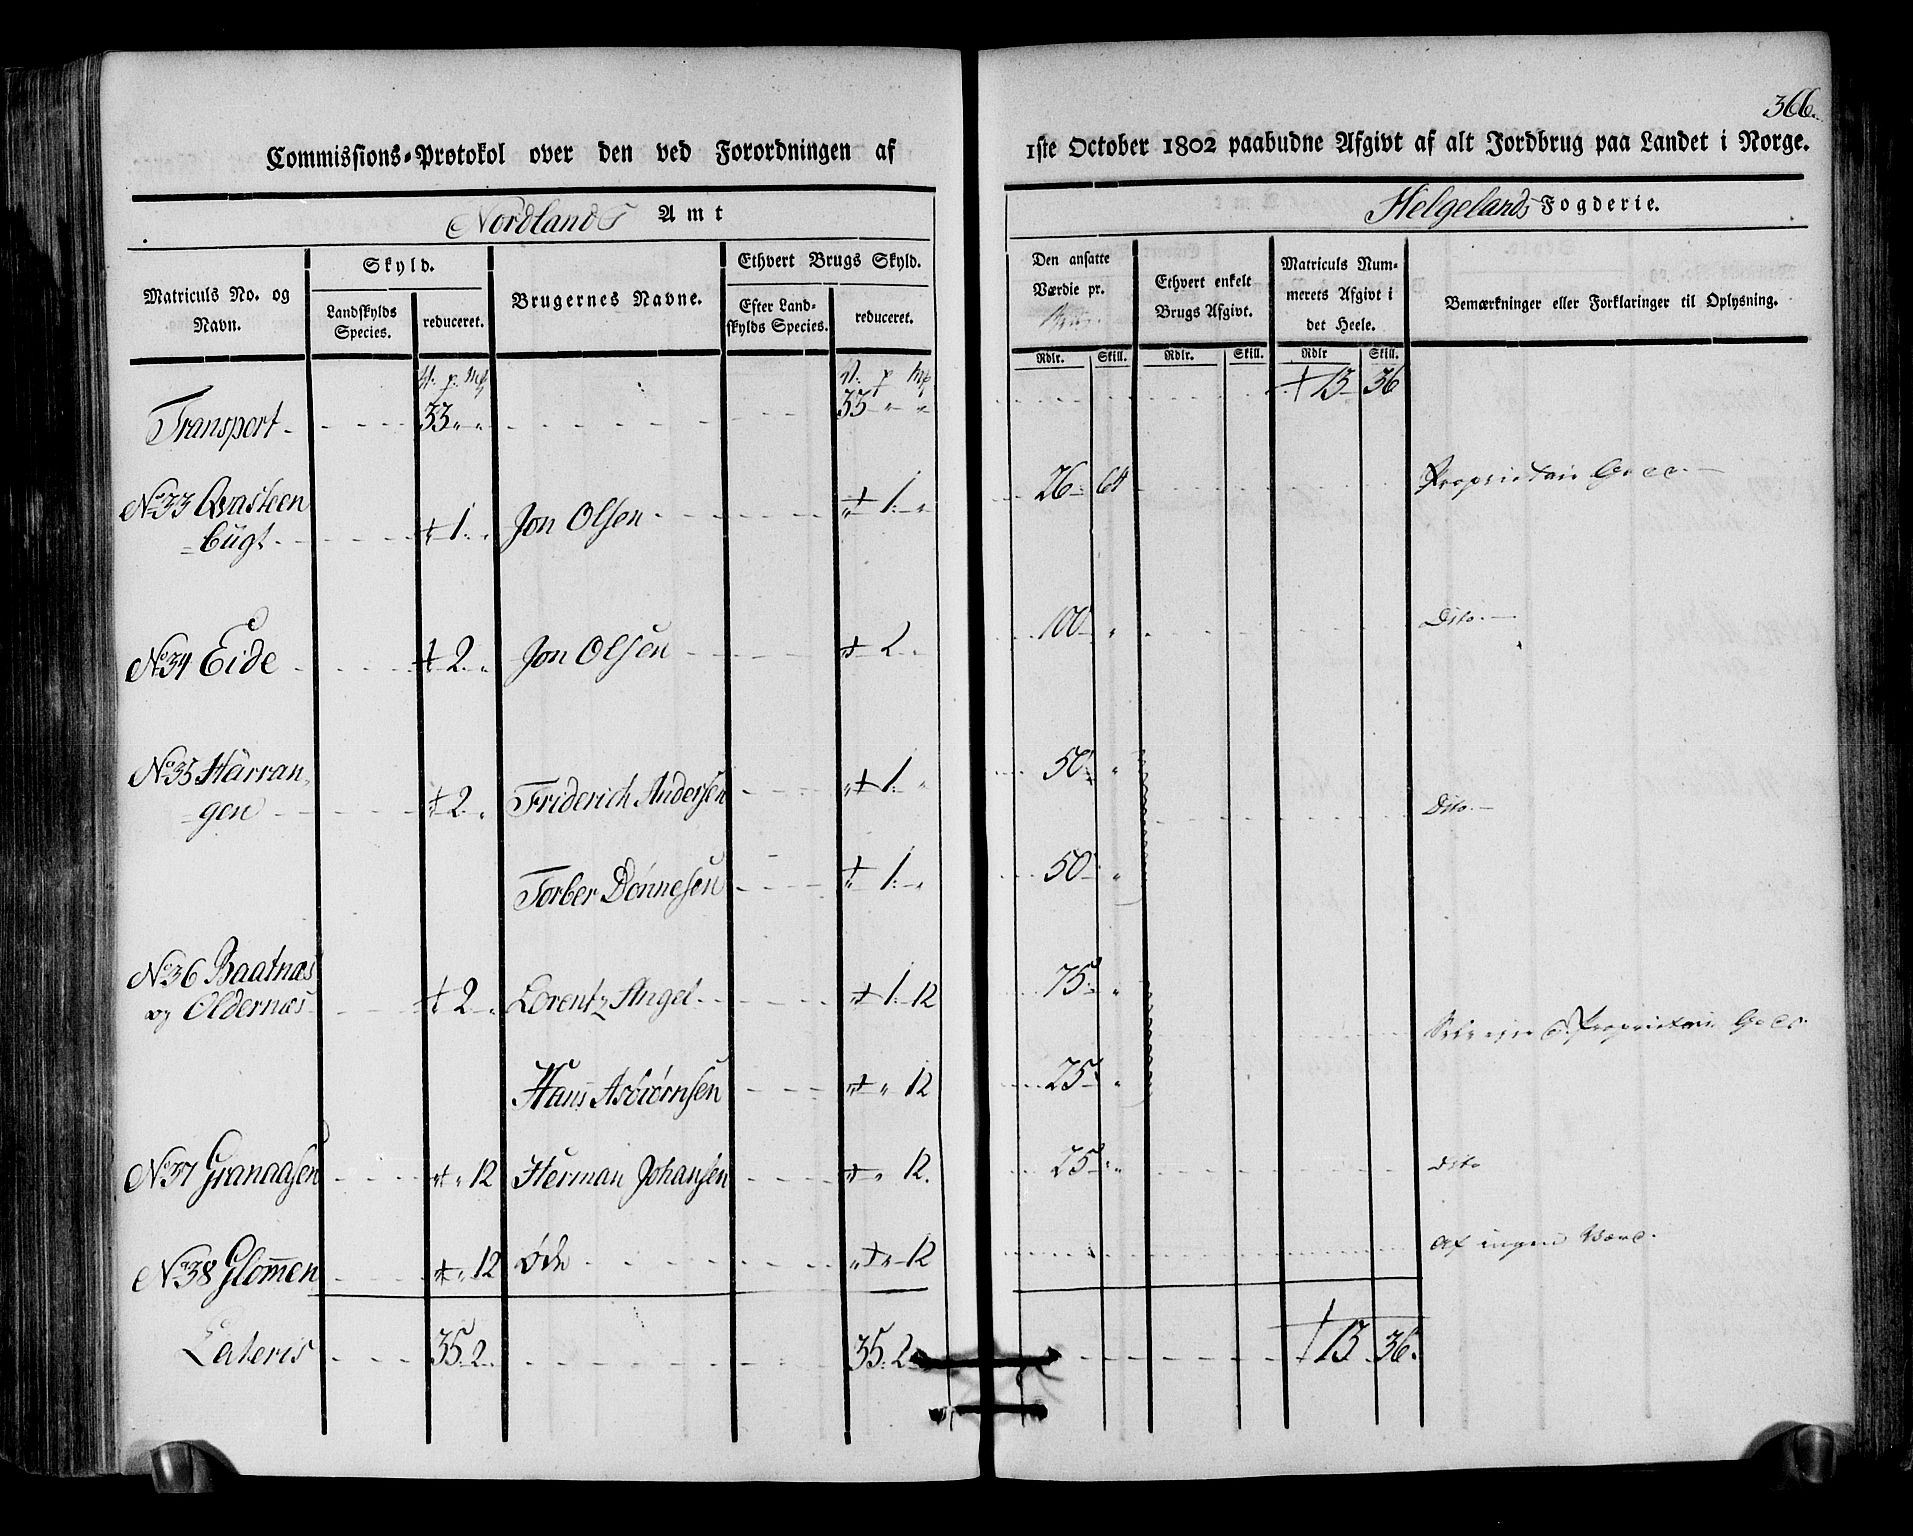 366.
Commissions-Protokol over den ved Forordningen af
1ste October 1802 paabudne Afgivt af alt Jordbrug paa Landet i Norge.
Nordlands Amt
Helgelands Fogderie.
Matriculs No. og Navn.
Skyld.
Landskylds Species.
reduceret.
Brugernes Navne.
Ethvert Brugs Skyld.
Efter Landskylds Species.
reduceret.
Den ansatte Værdie pr.
Rdlr. Skill.
Ethvert enkelt Brugs Afgivt.
Rdlr. Skill.
Matriculs Nummerets Afgivt i det Heele.
Rdlr Skill.
Bemærkninger eller Forklaringer til Oplysning.
Transport 33 " " 33 " " 13 36
No 33 Qvasteen
=bugt 1 " Jon Olsen 1 " 26 64 Proprietair
No 34 Eide 2 " Jon Olsen 2 " 100 " Dito
No 35 Harran=
=gen 2 " Friderich Andersen 1 " 50 " Dito
Torber Dønnesen 1 " 50 "
No 36 Baatnæs
og Oldernæs 2 " Lorentz Angel 1 12 75 " Selveier & Proprietair
Hans Asbiørnsen " 12 25 "
No 37 Granaasen " 12 Herman Johansen " 12. 25 " dito
No 38 Glommen " 12 øde " 12 Af ingen Værd.
Lateris 35. 2 35. 2 13 36.